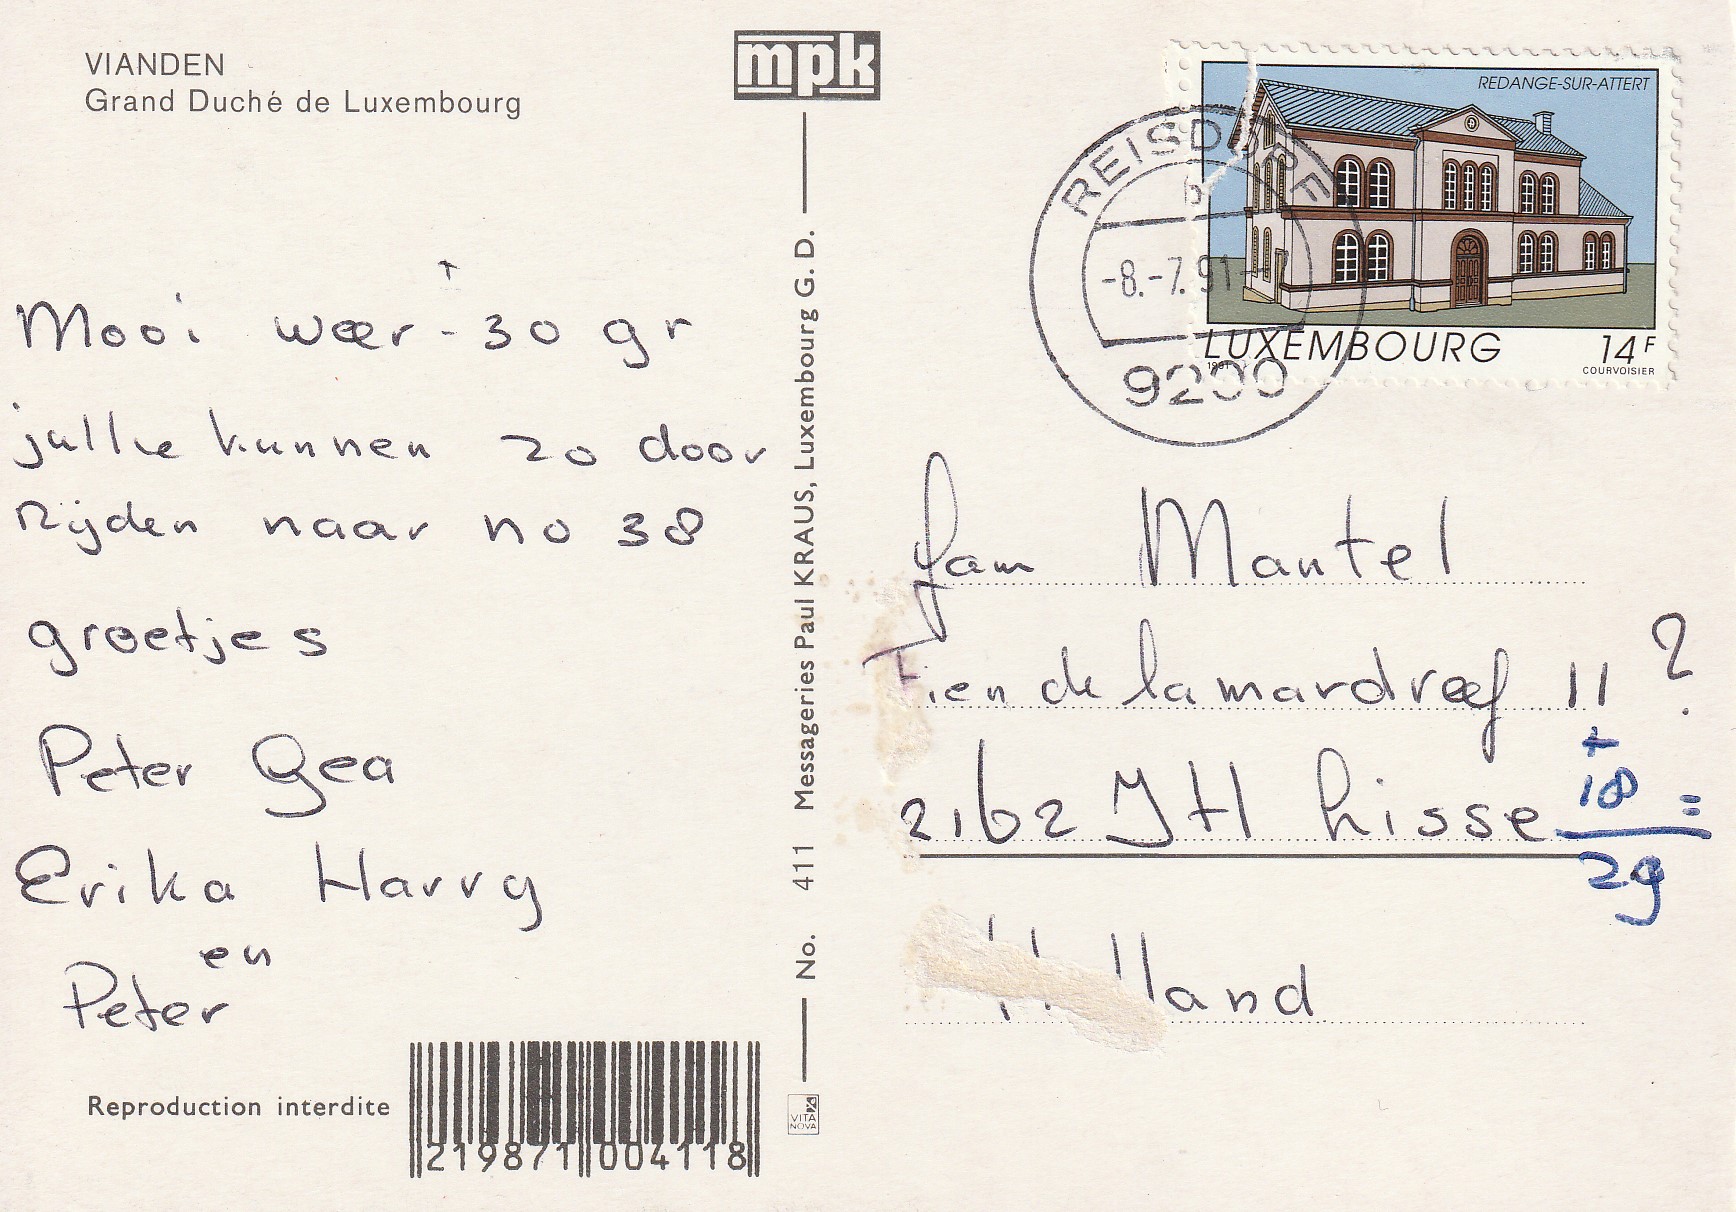 VIANDEN
Grand Duché de Luxembourg
mpk
+
Mooi weer - 30 gr
jullie kunnen zo door
rijden naar no 38
groetjes
Peter Gea
Erika Harry
en
Peter
Reproduction interdite
219871 004118
No. 411 Messageries Paul KRAUS, Luxembourg G. D.
VITA
NOVA
REDANGE-SUR-ATTERT
LUXEMBOURG 14F
1991 COURVOISIER
REISDORF
b
-8.-7.91-
9200
fam Mantel
Tien de lamardreef 11 ?
+
2162 JH Lisse 18 =
29
Holland